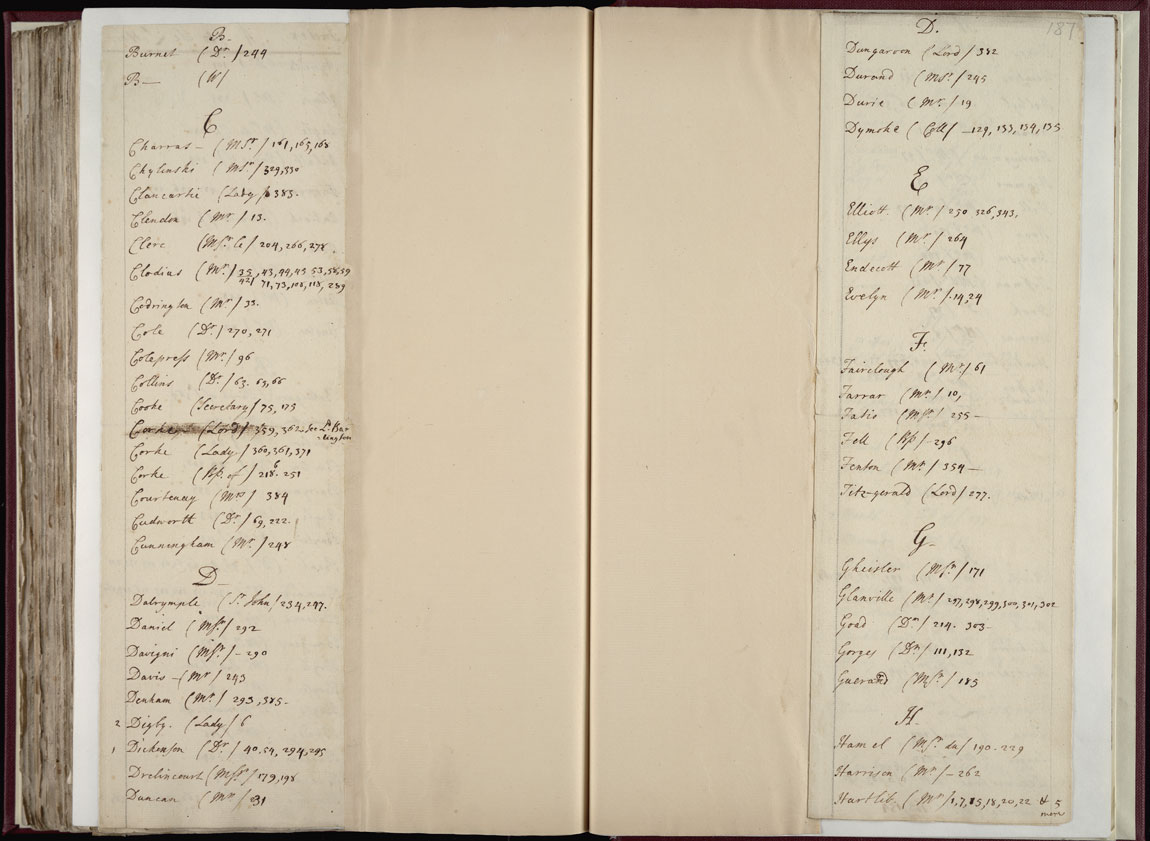 B.
Burnet (Dr/ 244
B— (W/
C
Charras — (Msr/ 161, 165, 168
Chylinski (Msr/ 329, 330
Clancartie (Lady/ 385.
Clendon (Mr/ 13.
Clerc (Msr. le/ 204, 266, 278
Clodius (Mr/ 35, 43, 44, 45 53, 58, 59
42/ 71, 73, 108, 118, 289
Codrington (Mr/ 33.
Cole (Dr/ 270, 271
Colepress (Mr./ 96
Collins (Dr./ 63. 65, 66
Cooke (Secretary/ 75, 175
Corke (Lord/ 359, 362 — see Ld. Bur
-lington
Corke (Lady/ 360, 361, 371
Corke (Bp. of/ 218. 251
Courtenay (Mrs/ 384
Cudworth (Dr/ 69, 222.
Cunningham (Mr/ 248
D —
Dalrymple (Sr. John/ 234, 247.
Daniel (Msr./ 292
Davigni (Msr./ — 290
Davis — (Mr/ 243
Denham (Mr./ 293, 385 —
2 Digby. (Lady/ 6
1 Dickenson (Dr/ 40. 54, 294, 295
Drelincourt (Msr/ 179, 198
Duncan (Mr/ 31
D.
187
Dungarvon (Lord/ 382
Durand (Msr./ 245
Durie (Mr./ 19
Dymoke (Coll/ — 129, 133, 134, 135
E
Elliott. (Mr./ 250 326, 343,
Ellys (Mr./ 264
Endecott (Mr/ 77
Evelyn (Mr/ . 14, 24
F.
Fairclough (Mr/ 61
Farrar (Mr/ 10,
Fatio (Msr./ 255 —
Fell (Bp/ — 296
Fenton (Mr/ 354 —
Fitz-gerald (Lord/ 277.
G —
Gheister (Msr./ 171
Glanville (Mr/ 297, 298, 299, 300, 301, 302
Goad (Dr/ 214. 303 —
Gorges (Dr/ 111, 132
Guerard (Msr./ 183
H —
Hamel (Msr. du/ 190 - 229
Harrison (Mr/ — 262
Hartlib. (Mr/ 1, 7, 15, 18, 20, 22 & 5
more